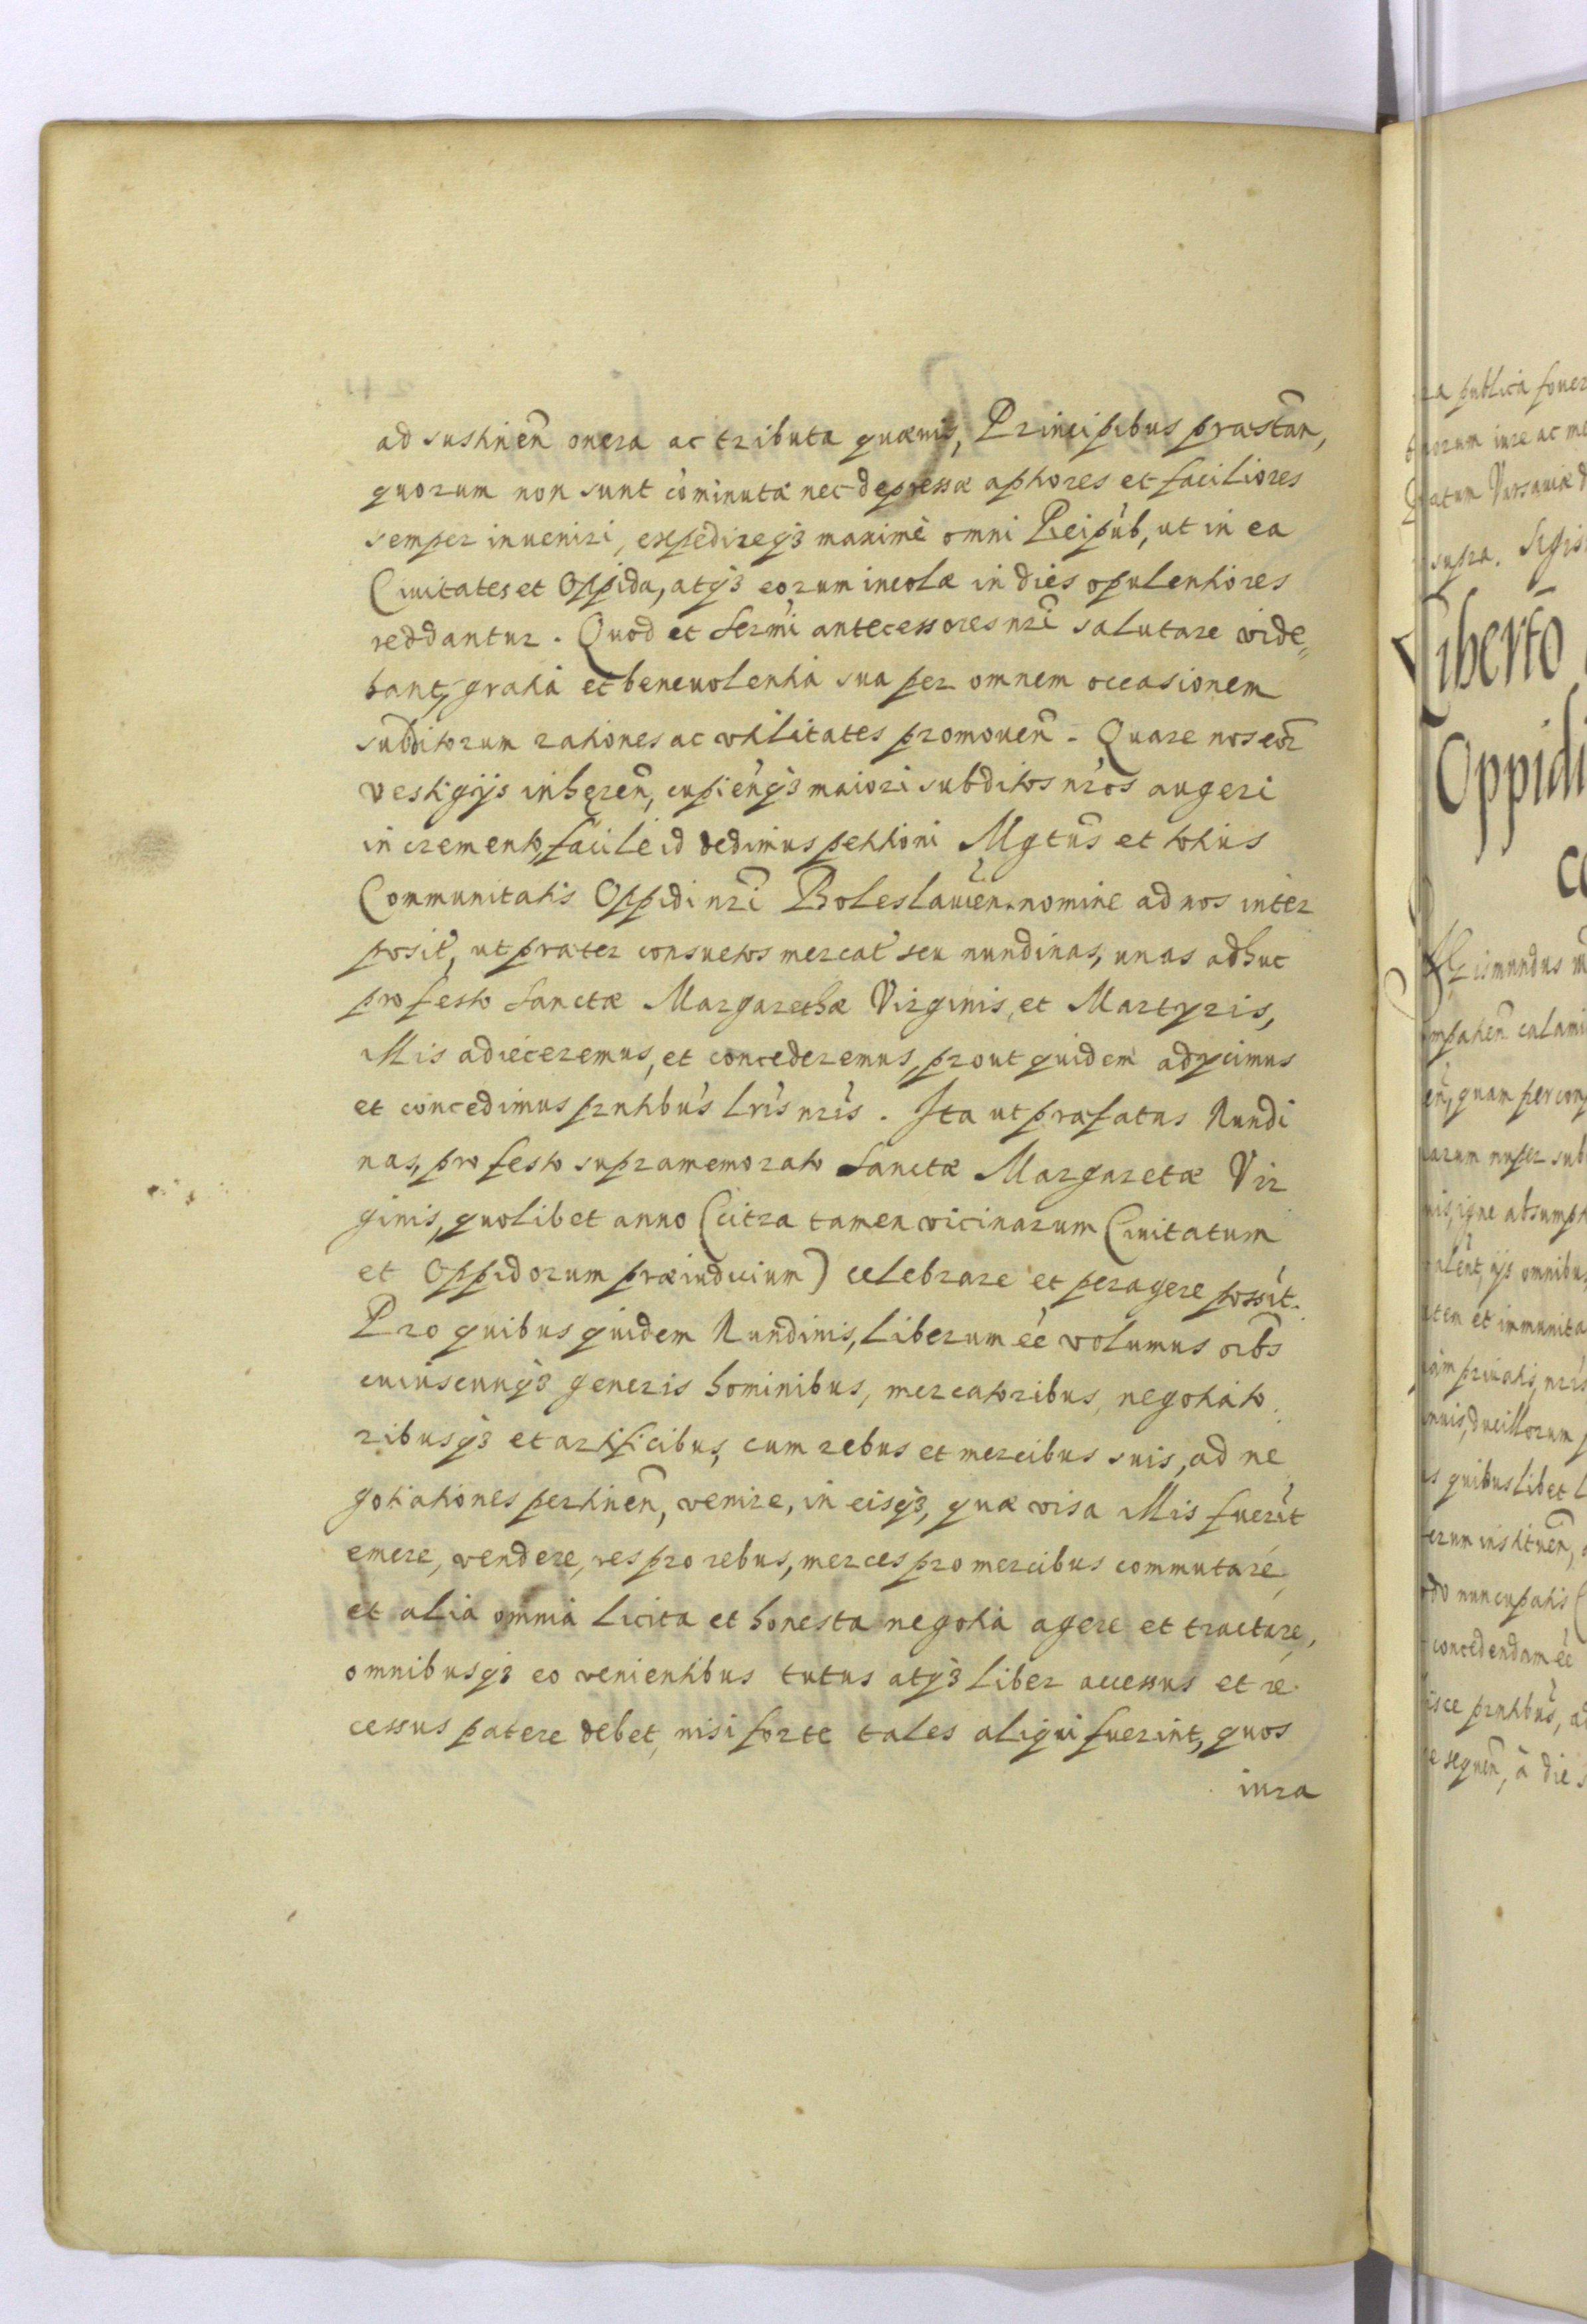 ad sustinen̄ onera ac tributa quævis, Principibus præstan̄,
quorum non sunt cōminutæ nec depressæ aptiores et faciliores
semper inveniri, expedireq́ꝫ maximè omni Reipub, ut in ea
Civitates et Oppida, atq́ꝫ eorum incolæ in dies opulentiores
reddantur. Quod et Sermi antecessores nr̄i salutare vide„
bant, gratiâ et benevolentiâ sua per omnem occasionem
subditorum rationes ac utilitates promoven̄. Quare nos eor̄
vestigijs inhęren̄, cupienq́ꝫ maiori subditos nr̄os augeri
incremento, facile id dedimus petitioni Mgtus et totius
Communitatis Oppidi nr̄i Boleslavien. nomine ad nos inter
posit, ut præter consuetos mercat seu nundinas, unas adhuc
pro festo Sanctæ Margarethæ Virginis, et Martyris,
Illis adiiceremus, et concederemus, prout quidem adycimus
et concedimus prntibus lr̄is nr̄is. Ita ut præfatas Nundi
nas, pro festo supramemorato Sanctæ Margaretæ Vir
ginis, quolibet anno (citra tamen vicinarum Civitatum
et Oppidorum præiudicium) celebrare et peragere possit.
Pro quibus quidem Nundinis, liberum eē volumus oībs
cuiuscunq́ꝫ generis hominibus, mercatoribus, negotiato
ribusq́ꝫ et artificibus, cum rebus et mercibus suis, ad ne
gotiationes pertinen̄, venire, in eisq́ꝫ, quæ visa Illis fuerit
emere, vendere, res pro rebus, merces pro mercibus commutare,
et alia omnia licita et honesta negotia agere et tractare,
omnibusq́ꝫ eo venientibus tutus atq́ꝫ liber accessus et re
cessus patere debet, nisi forte tales aliqui fuerint, quos
iura
ra publica fover
supra.
Liberto
Oppidi